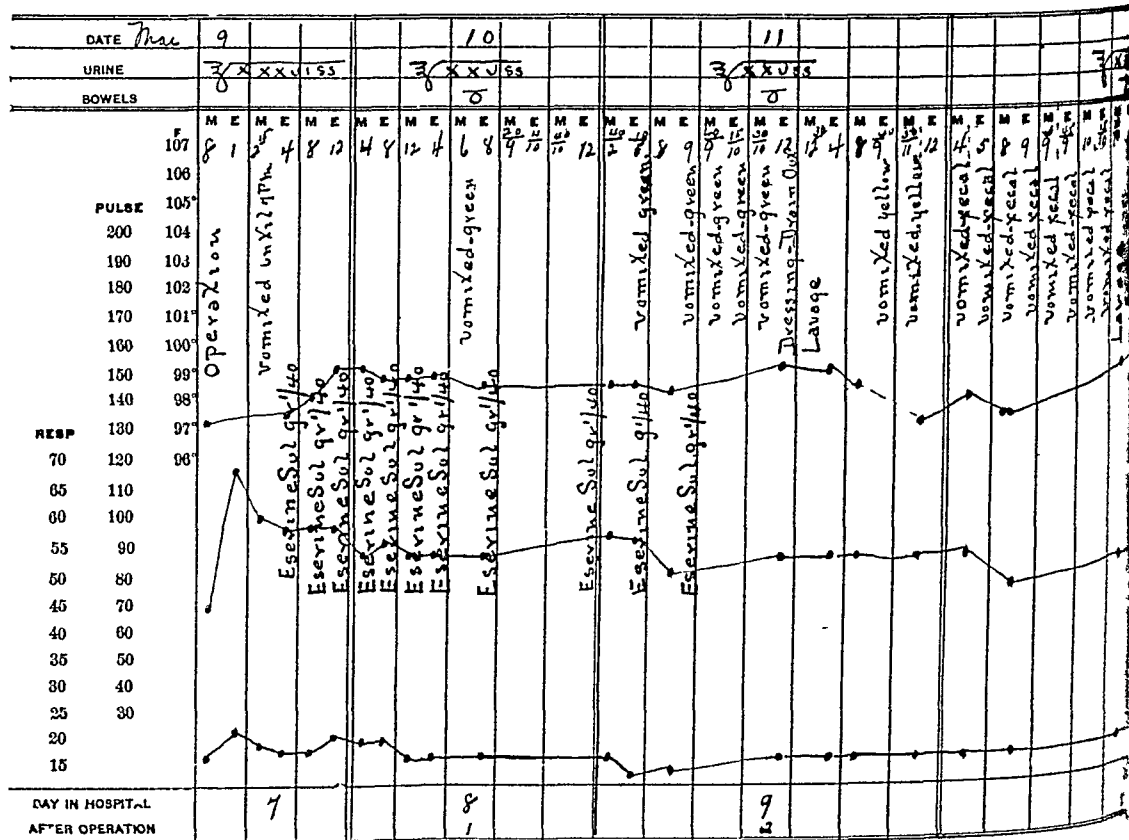 DATE Mar 9 10 11
URINE ℥ XXXVISS ℥ XXVSS ℥ XXVSS
BOWELS 0 0
M E M E M E M E M E M E M E M E M E M E M E M E M E M E M E M E M E
F
107 8 1 4 8 12 4 8 12 4 6 8 12 8 9 12 4 8 12 4 5 8 9
106
PULSE 105°
200 104
190 103
180 102
170 101°
160 100°
150 99°
140 98°
RESP 130 97°
70 120 96°
65 110
60 100
55 90
50 80
45 70
40 60
35 50
30 40
25 30
20
15
Operation
vomited until 7 Pm
EserineSul gr 1/40
EserineSul gr 1/40
EserineSul gr 1/40
EserineSul gr 1/40
EserineSul gr 1/40
EserineSul gr 1/40
EserineSul gr 1/40
vomited-green
EserineSul gr 1/40
EserineSul gr 1/40
vomited green
EserineSul gr 1/40
vomited-green
EserineSul gr 1/40
vomited-green
vomited-green
vomited-green
Dressing-Drain Out
Lavage
vomited yellow
vomited-yellow
vomited-fecal
vomited-fecal
vomited-fecal
vomited-fecal
vomited fecal
vomited-fecal
vomited fecal
vomited fecal
DAY IN HOSPITAL 7 8 9
AFTER OPERATION 1 2